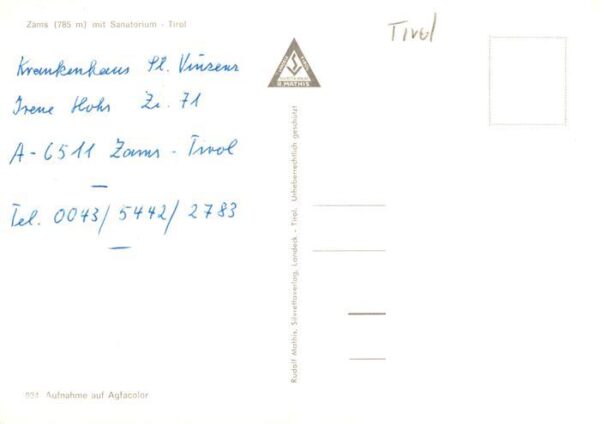 Zams (785 m) mit Sanatorium - Tirol
Krankenhaus St. Vinzenz
Irene Hohs Zi. 71
A-6511 Zams - Tirol
Tel. 0043/5442/2783
Tirol
R. MATHIS
Rudolf Mathis, Silvrettaverlag, Landeck - Tirol. Urheberrechtlich geschützt
934 Aufnahme auf Agfacolor